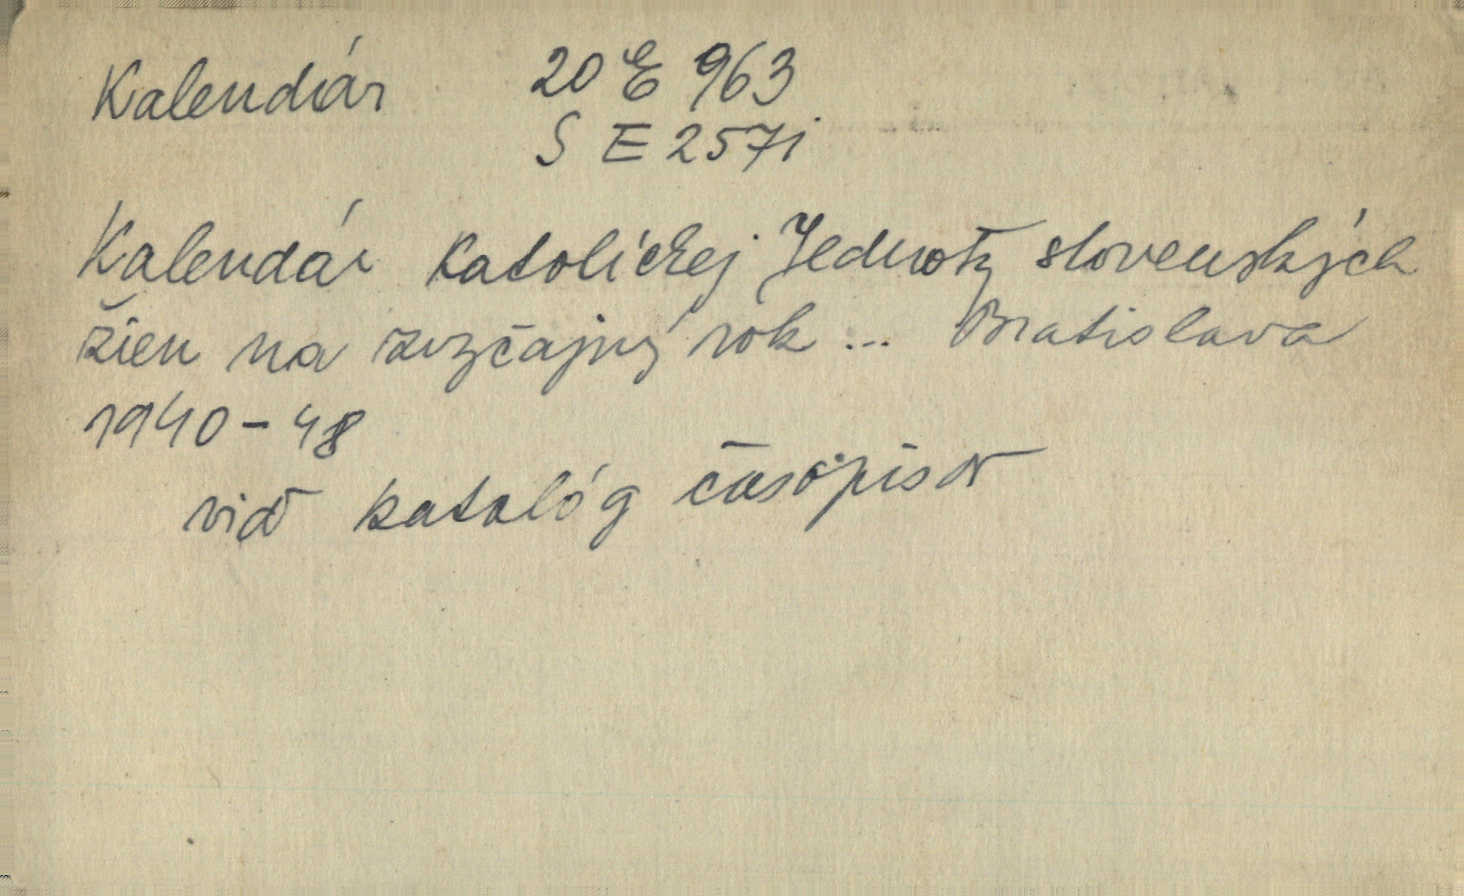 Kalendár 20 E 963
S E 2571
Kalendár Katolíckej Jednoty slovenských
žien na zvyčajný rok ... Bratislava
1940-48
viď katalóg časopisov